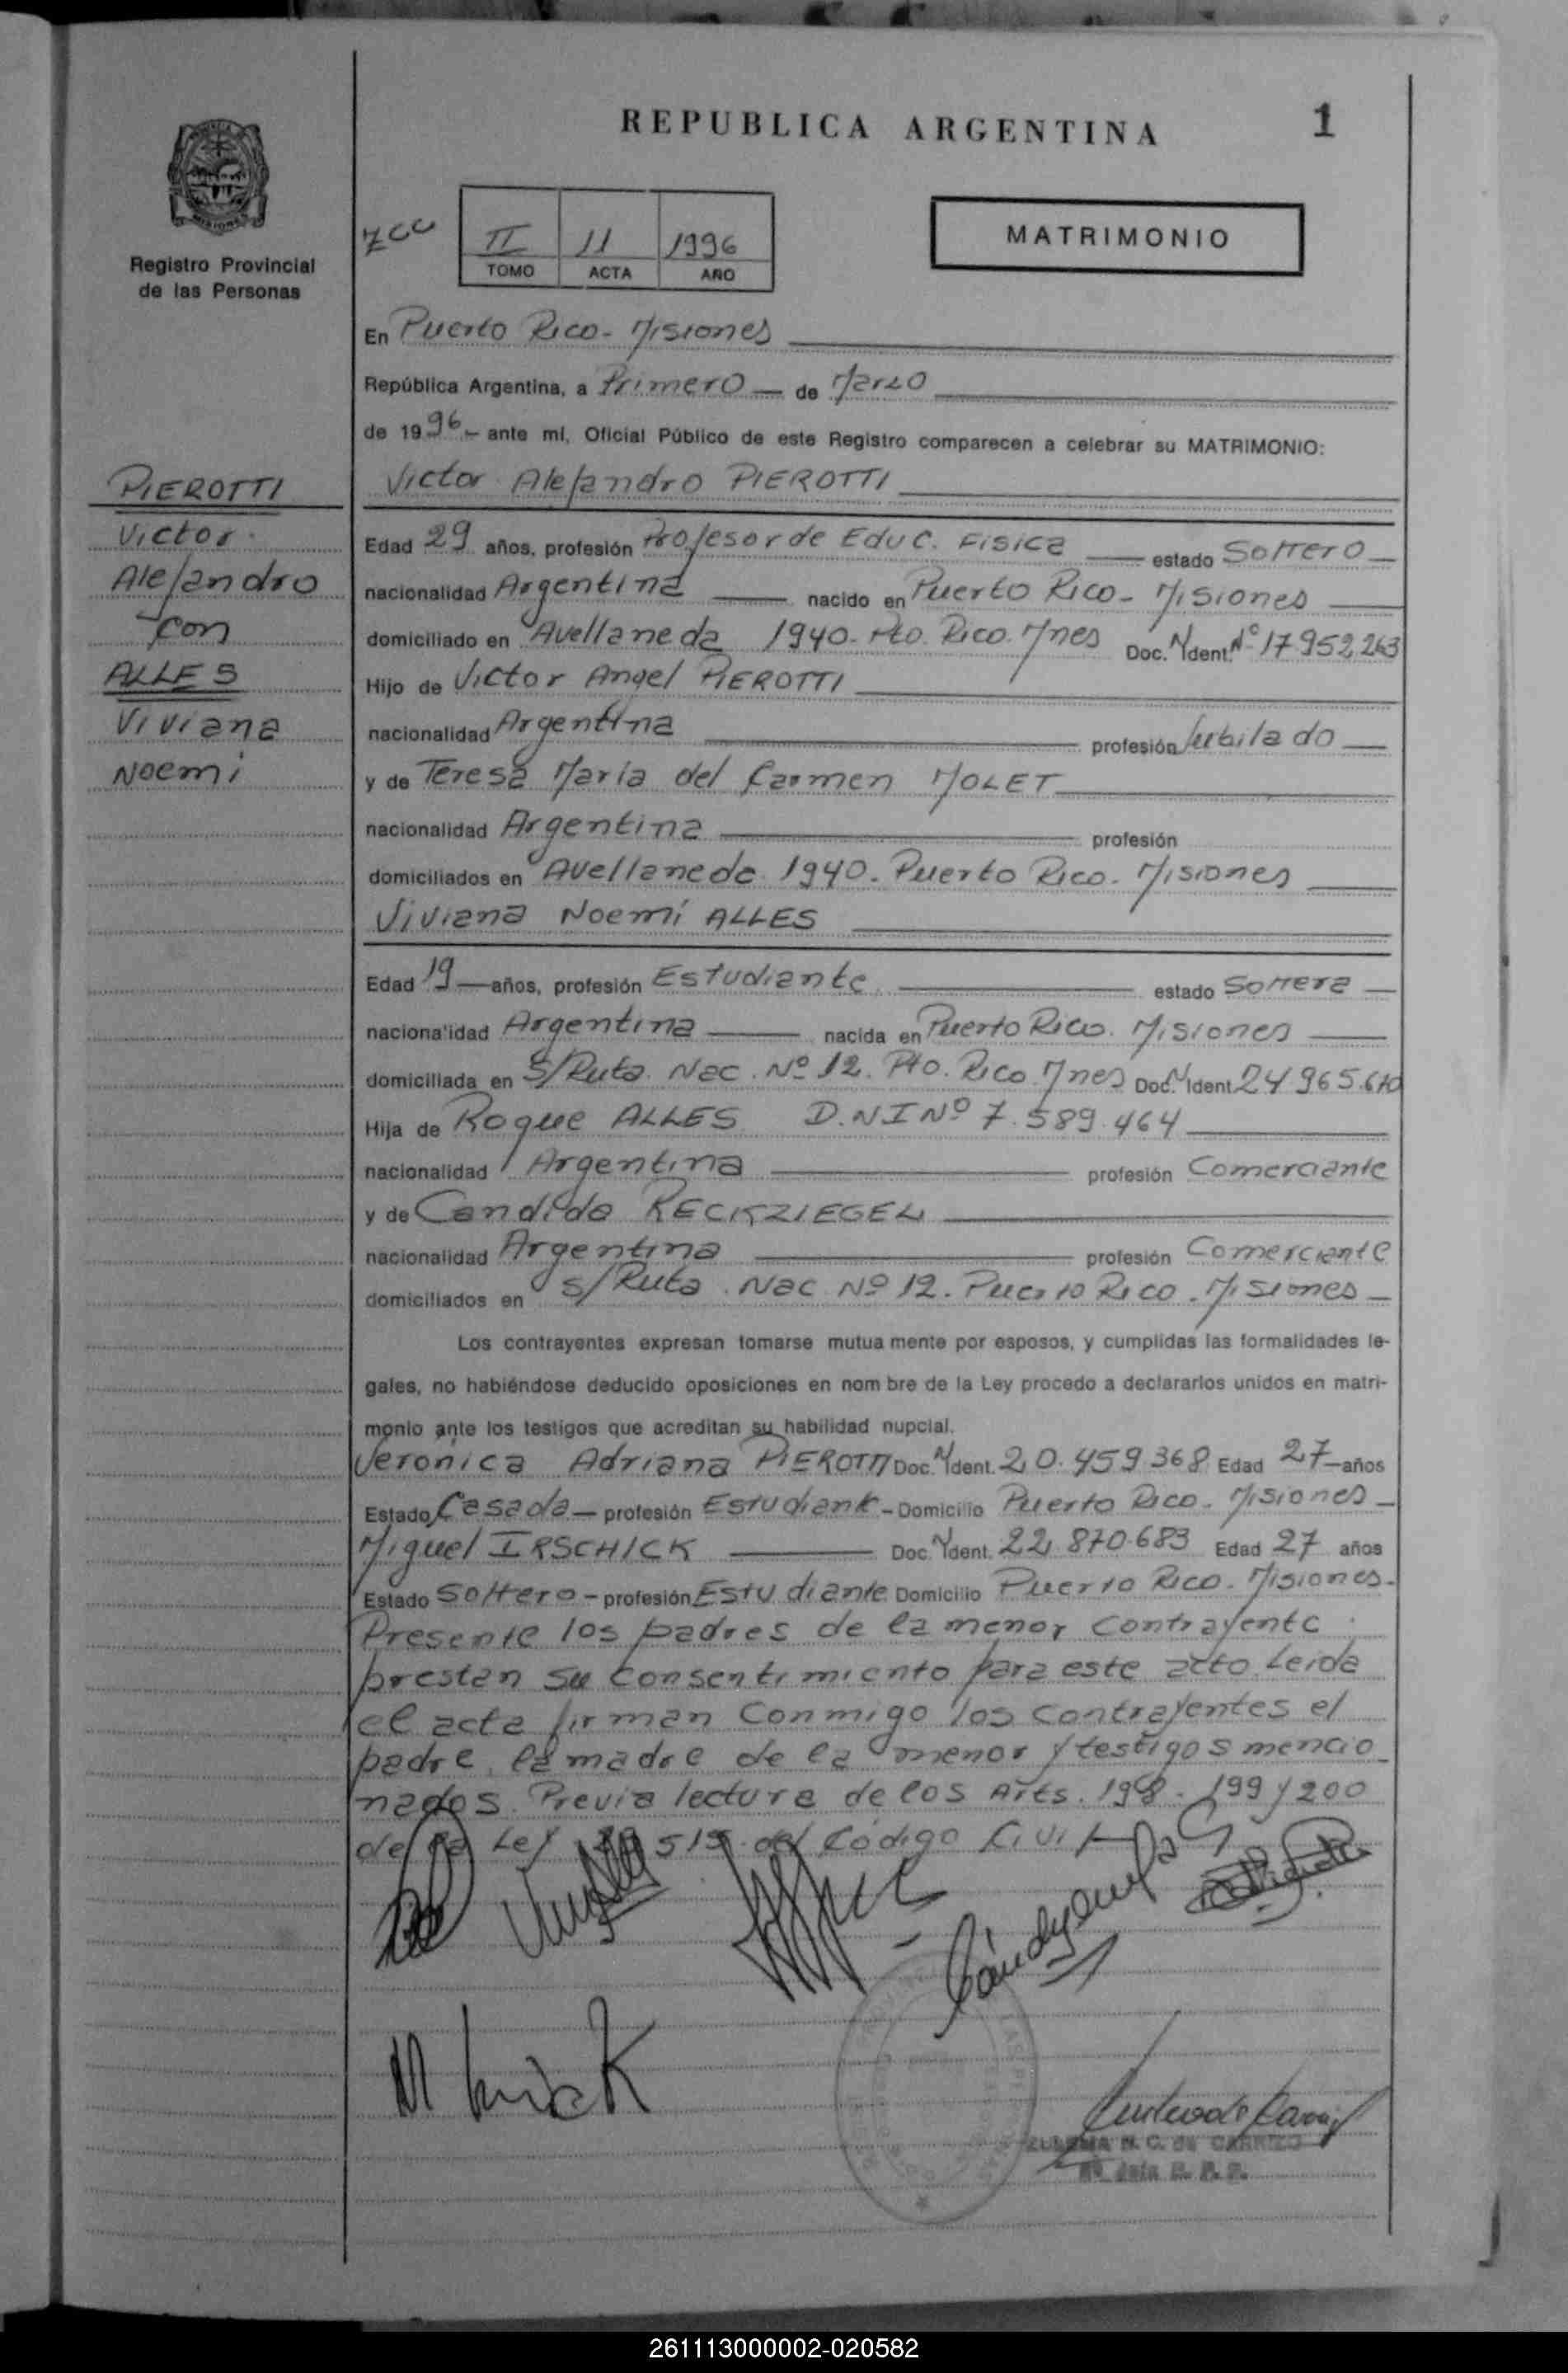 REPUBLICA ARGENTINA
1
PROVINCIA DE MISIONES
Registro Provincial
de las Personas
II 11 1996
TOMO ACTA AÑO
MATRIMONIO
En Puerto Rico - Misiones
República Argentina, a Primero de Marzo
de 1996 - ante mí, Oficial Público de este Registro comparecen a celebrar su MATRIMONIO:
Victor Alejandro PIEROTTI
PIEROTTI
Victor
Alejandro
con
ALLES
Viviana
Noemi
Edad 29 años, profesión Profesor de Educ. Fisica estado Soltero
nacionalidad Argentina nacido en Puerto Rico - Misiones
domiciliado en Avellaneda 1940. Pto. Rico. Mnes Doc. N. Ident. Nº 17952263
Hijo de Victor Angel PIEROTTI
nacionalidad Argentina profesión Jubilado
y de Teresa Maria del Carmen MOLET
nacionalidad Argentina profesión
domiciliados en Avellaneda 1940. Puerto Rico. Misiones
Viviana Noemí ALLES
Edad 19 años, profesión Estudiante estado Soltera
naciona'idad Argentina nacida en Puerto Rico. Misiones
domiciliada en S/Ruta Nac. Nº 12. Pto. Rico. Mnes Doc. N. Ident. 24.965.670
Hija de Roque ALLES D.N.I Nº 7.589.464
nacionalidad Argentina profesión Comerciante
y de Candida RECKZIEGEL
nacionalidad Argentina profesión Comerciante
domiciliados en S/Ruta Nac Nº 12. Puerto Rico. Misiones
Los contrayentes expresan tomarse mutua mente por esposos, y cumplidas las formalidades le-
gales, no habiéndose deducido oposiciones en nom bre de la Ley procedo a declararlos unidos en matri-
monio ante los testigos que acreditan su habilidad nupcial.
Veronica Adriana PIEROTTI Doc. N. Ident. 20.459.368 Edad 27 años
Estado Casada - profesión Estudiante - Domicilio Puerto Rico. Misiones
Miguel IRSCHICK Doc. N. Ident. 22.870.683 Edad 27 años
Estado Soltero - profesión Estudiante Domicilio Puerto Rico. Misiones.
Presente los padres de la menor contrayente
prestan su consentimiento para este acto. Leida
el acta firman conmigo los contrayentes el
padre, la madre de la menor y testigos mencio
nados. Previa lectura de los Arts. 198. 199 y 200
de la Ley 23.515 del Código Civil
ZULEMA N. C. de CARRIZO
Jefa R. P. P.
261113000002-020582